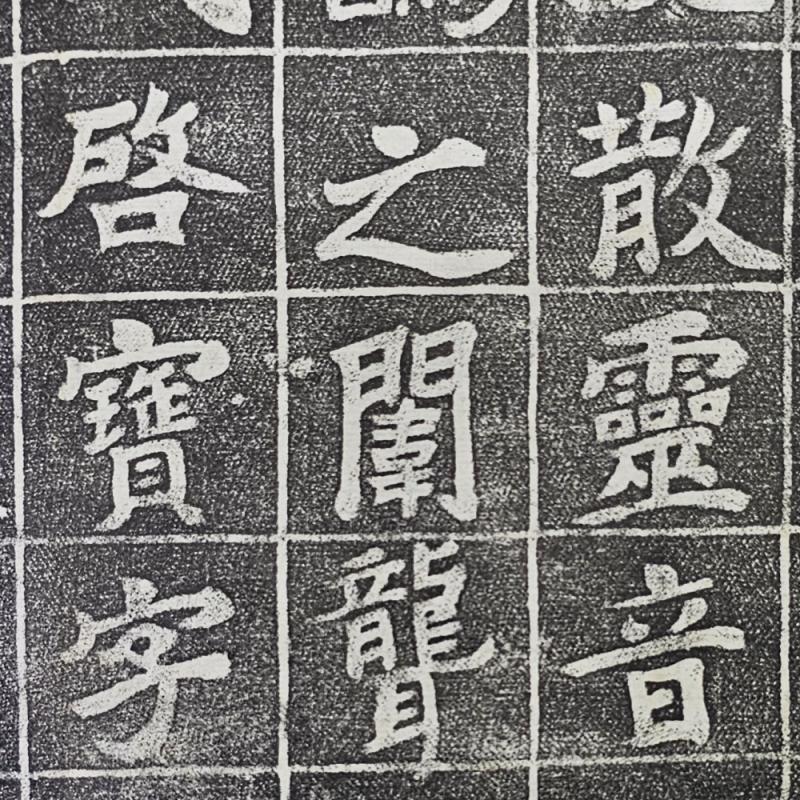 散靈音
之闈聾
啓寶字